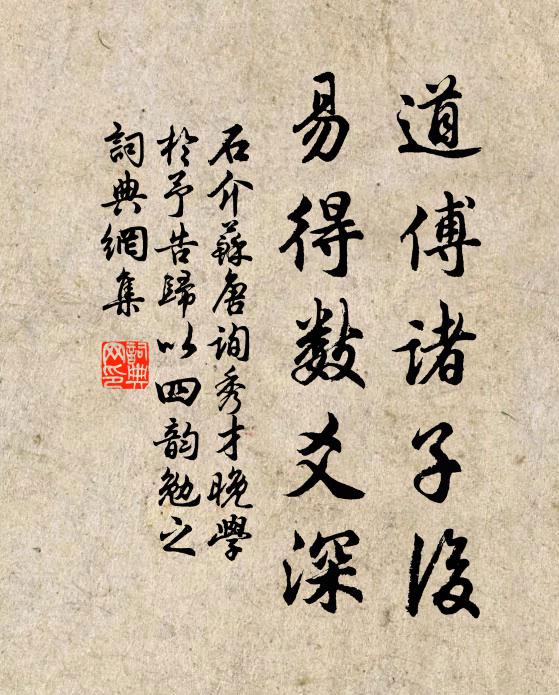 道傅諸子後
易得數爻深
石介蘇唐詢秀才晚學
於予告歸以四韵勉之
詞典網集
詞典網印